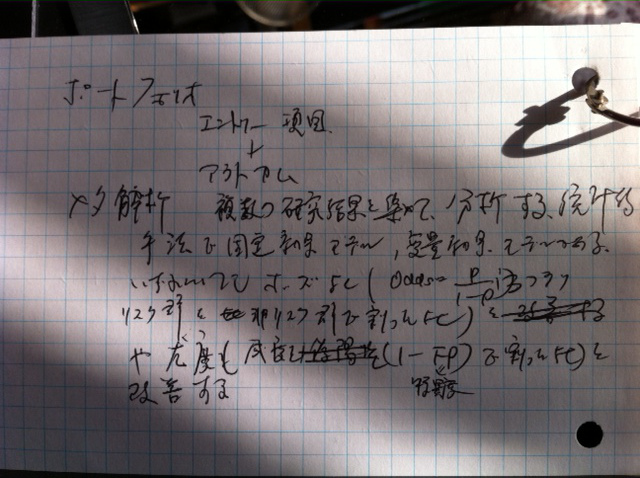 ポートフォリオ
エントリー項目
+
アウトカム
メタ解析 複数の研究結果を集めて、分析する、統計的
手法で固定効果モデル、変量効果モデルがある。
いずれにしても オッズ比 ( Odds = P/1-P
リスク群を 非リスク群で割った比) を
や尤度も 感度を (1-FP) で割った比) を
特異度
改善する